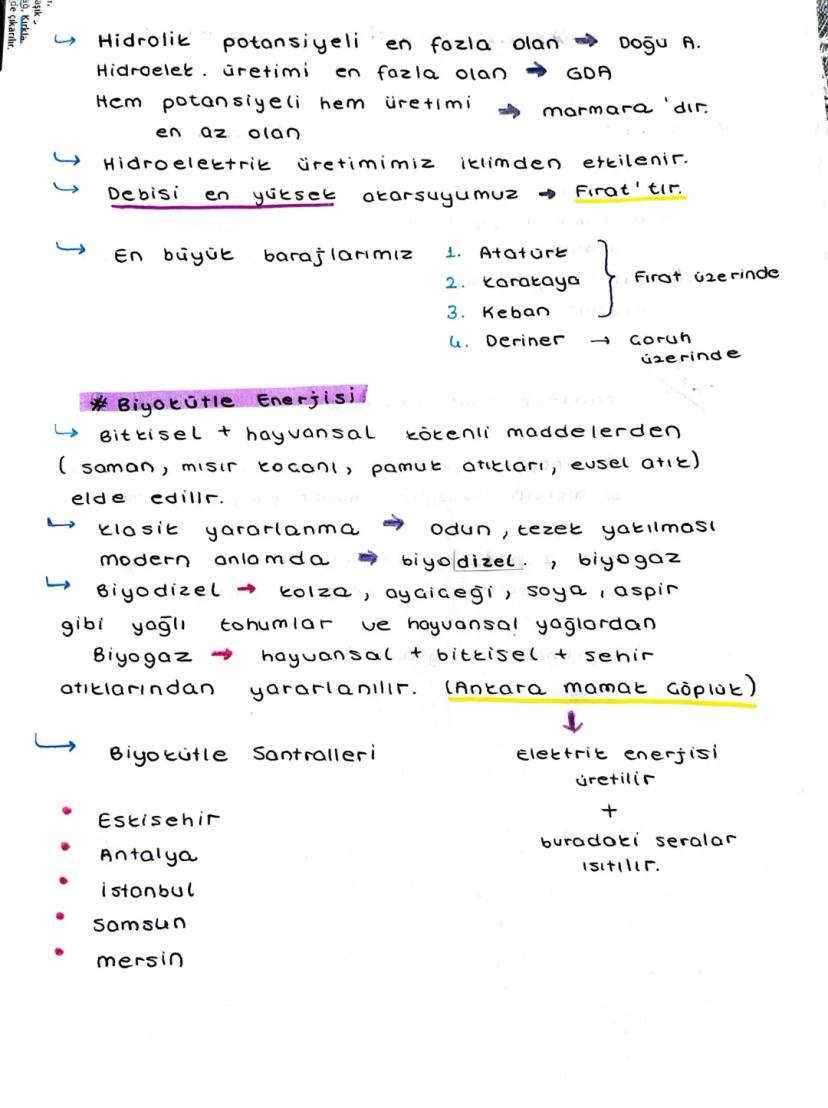 ↳ Hidrolik potansiyeli en fazla olan → Doğu A.
Hidroelek. üretimi en fazla olan → GDA
Hem potansiyeli hem üretimi → marmara'dır.
en az olan
↳ Hidroelektrik üretimimiz iklimden etkilenir.
↳ Debisi en yüksek akarsuyumuz → Fırat'tır.
↳ En büyük barajlarımız 1. Atatürk
2. Karakaya } Fırat üzerinde
3. Keban
4. Deriner → Çoruh
üzerinde
# Biyokütle Enerjisi
↳ Bitkisel + hayvansal kökenli maddelerden
(saman, mısır koçanı, pamuk atıkları, evsel atık)
elde edilir.
↳ Klasik yararlanma → Odun, tezek yakılması
modern anlamda → biyodizel. , biyogaz
↳ Biyodizel → kolza, ayçiçeği, soya, aspir
gibi yağlı tohumlar ve hayvansal yağlardan
Biyogaz → hayvansal + bitkisel + şehir
atıklarından yararlanılır. (Ankara mamak Çöplük)
↓
↳ Biyokütle Santralleri
Elektrik enerjisi
üretilir
+
buradaki seralar
ısıtılır.
• Eskişehir
• Antalya
• istanbul
• Samsun
• mersin